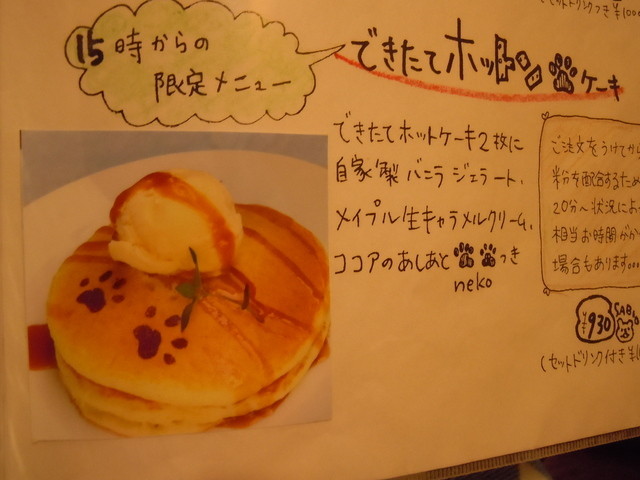 セットドリンクつき¥100
15時からの
限定メニュー
できたてホットケーキ
できたてホットケーキ2枚に
自家製バニラジェラート、
メイプル生キャラメルクリーム、
ココアのあしあとつき
neko
ご注文をうけてから
粉を配合するため
20分〜状況によ
相当お時間がか
場合もあります。。。
930
(セットドリンク付き¥1